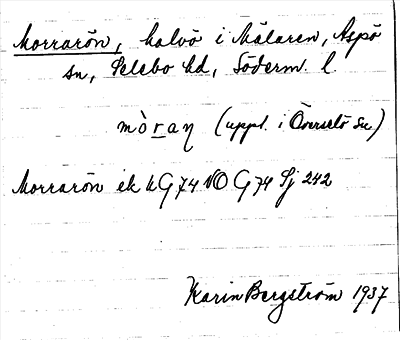 Morrarön, halvö i Mälaren, Aspö
sn, Selebo hd, Söderm. l.
mòraŋ (uppt. i Överselö sn)
Morrarön ek G 74 NO G 74 Sj 242
Karin Bergström 1937